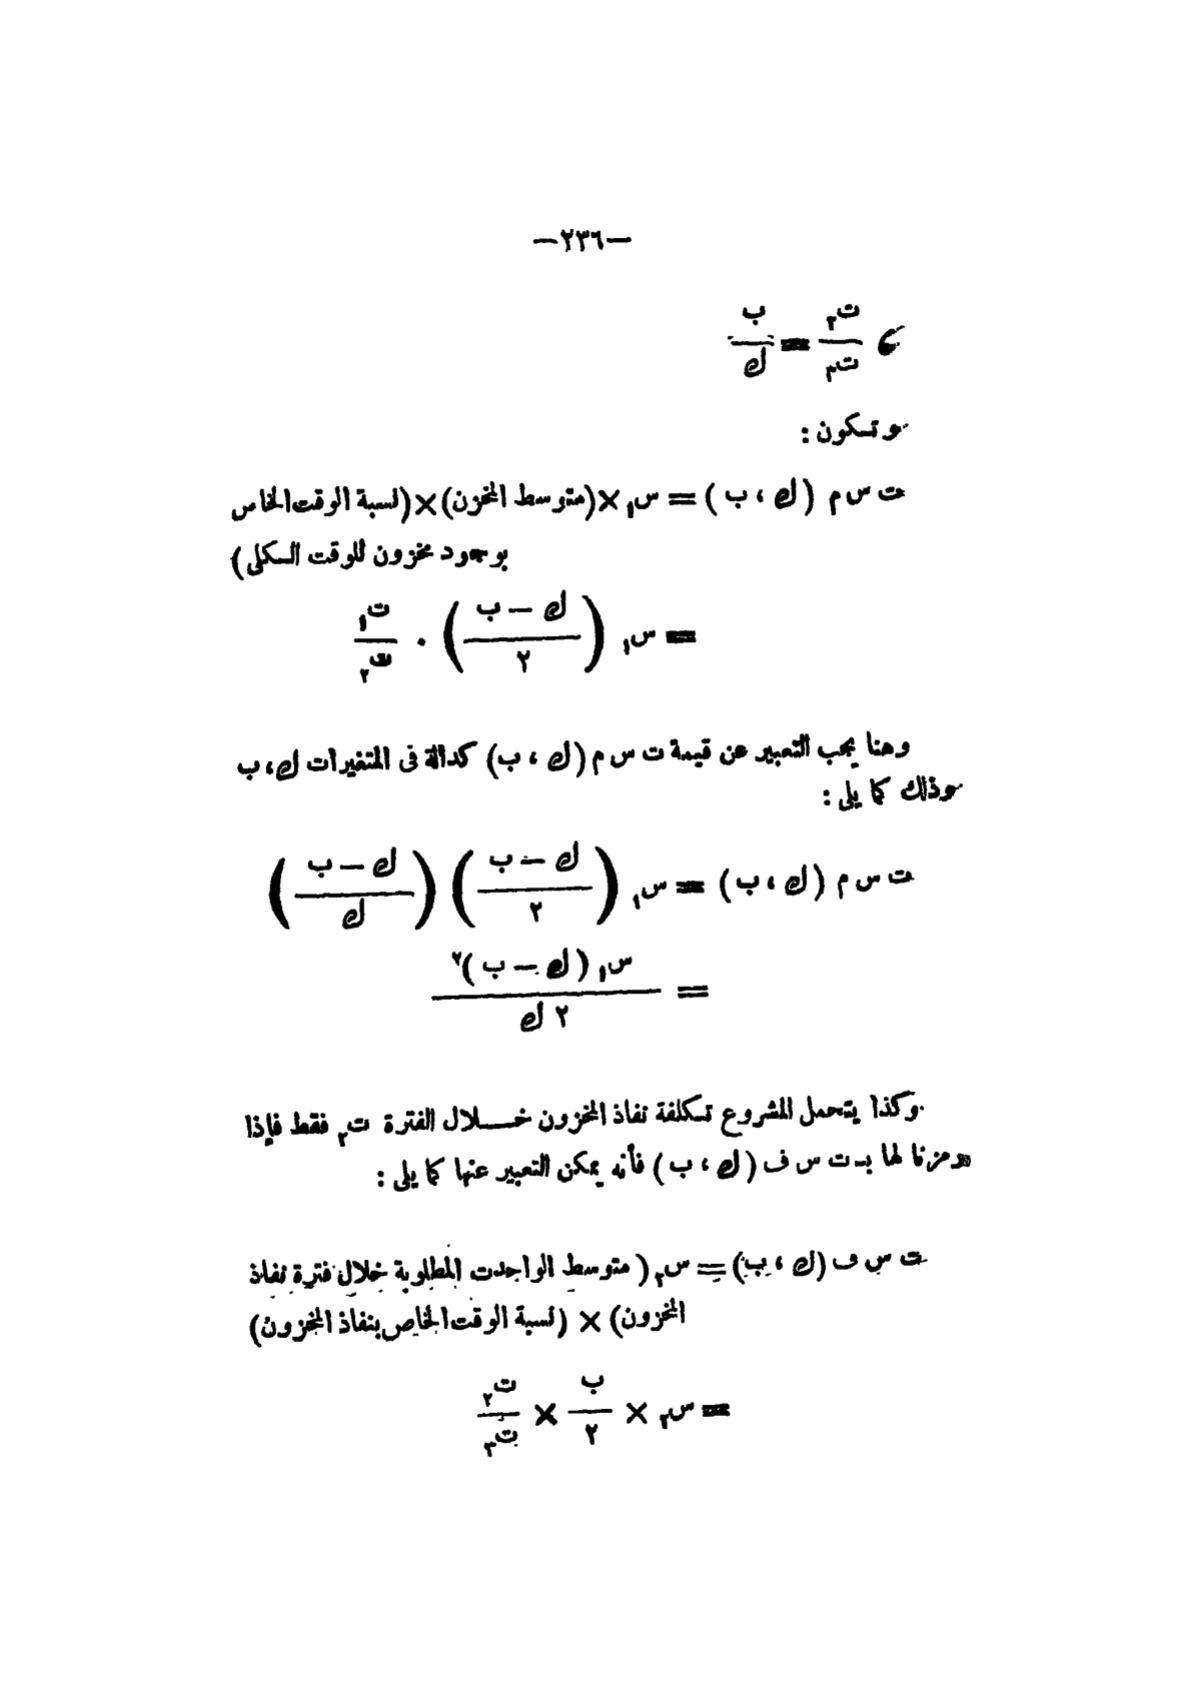 —٢٣٦—
، ت٢ / ت٣ = ب / ك
وتكون :
ت س م ( ك ، ب ) = س١ × (متوسط المخزن) × (نسبة الوقت الخاص
بوجود مخزون للوقت الكلى)
= س١ ( ك — ب / ٢ ) . ت١ / ت٣
وهنا يجب التعبير عن قيمة ت س م ( ك ، ب ) كدالة فى المتغيرات ك، ب
وذلك كما يلى :
ت س م ( ك ، ب ) = س١ ( ك — ب / ٢ ) ( ك — ب / ك )
= س١ ( ك — ب )٢ / ٢ ك
وكذا يتحمل المشروع تكلفة نفاذ المخزون خلال الفترة ت٢ فقط فإذا
رمزنا لها بـ ت س ف ( ك ، ب ) فأنه يمكن التعبير عنها كما يلى :
ت س ف ( ك ، ب ) = س٢ ( متوسط الواحدت المطلوبة خلال فترة نفاذ
المخزون) × (نسبة الوقت الخاص بنفاذ المخزون)
= س٢ × ب / ٢ × ت٢ / ت٣